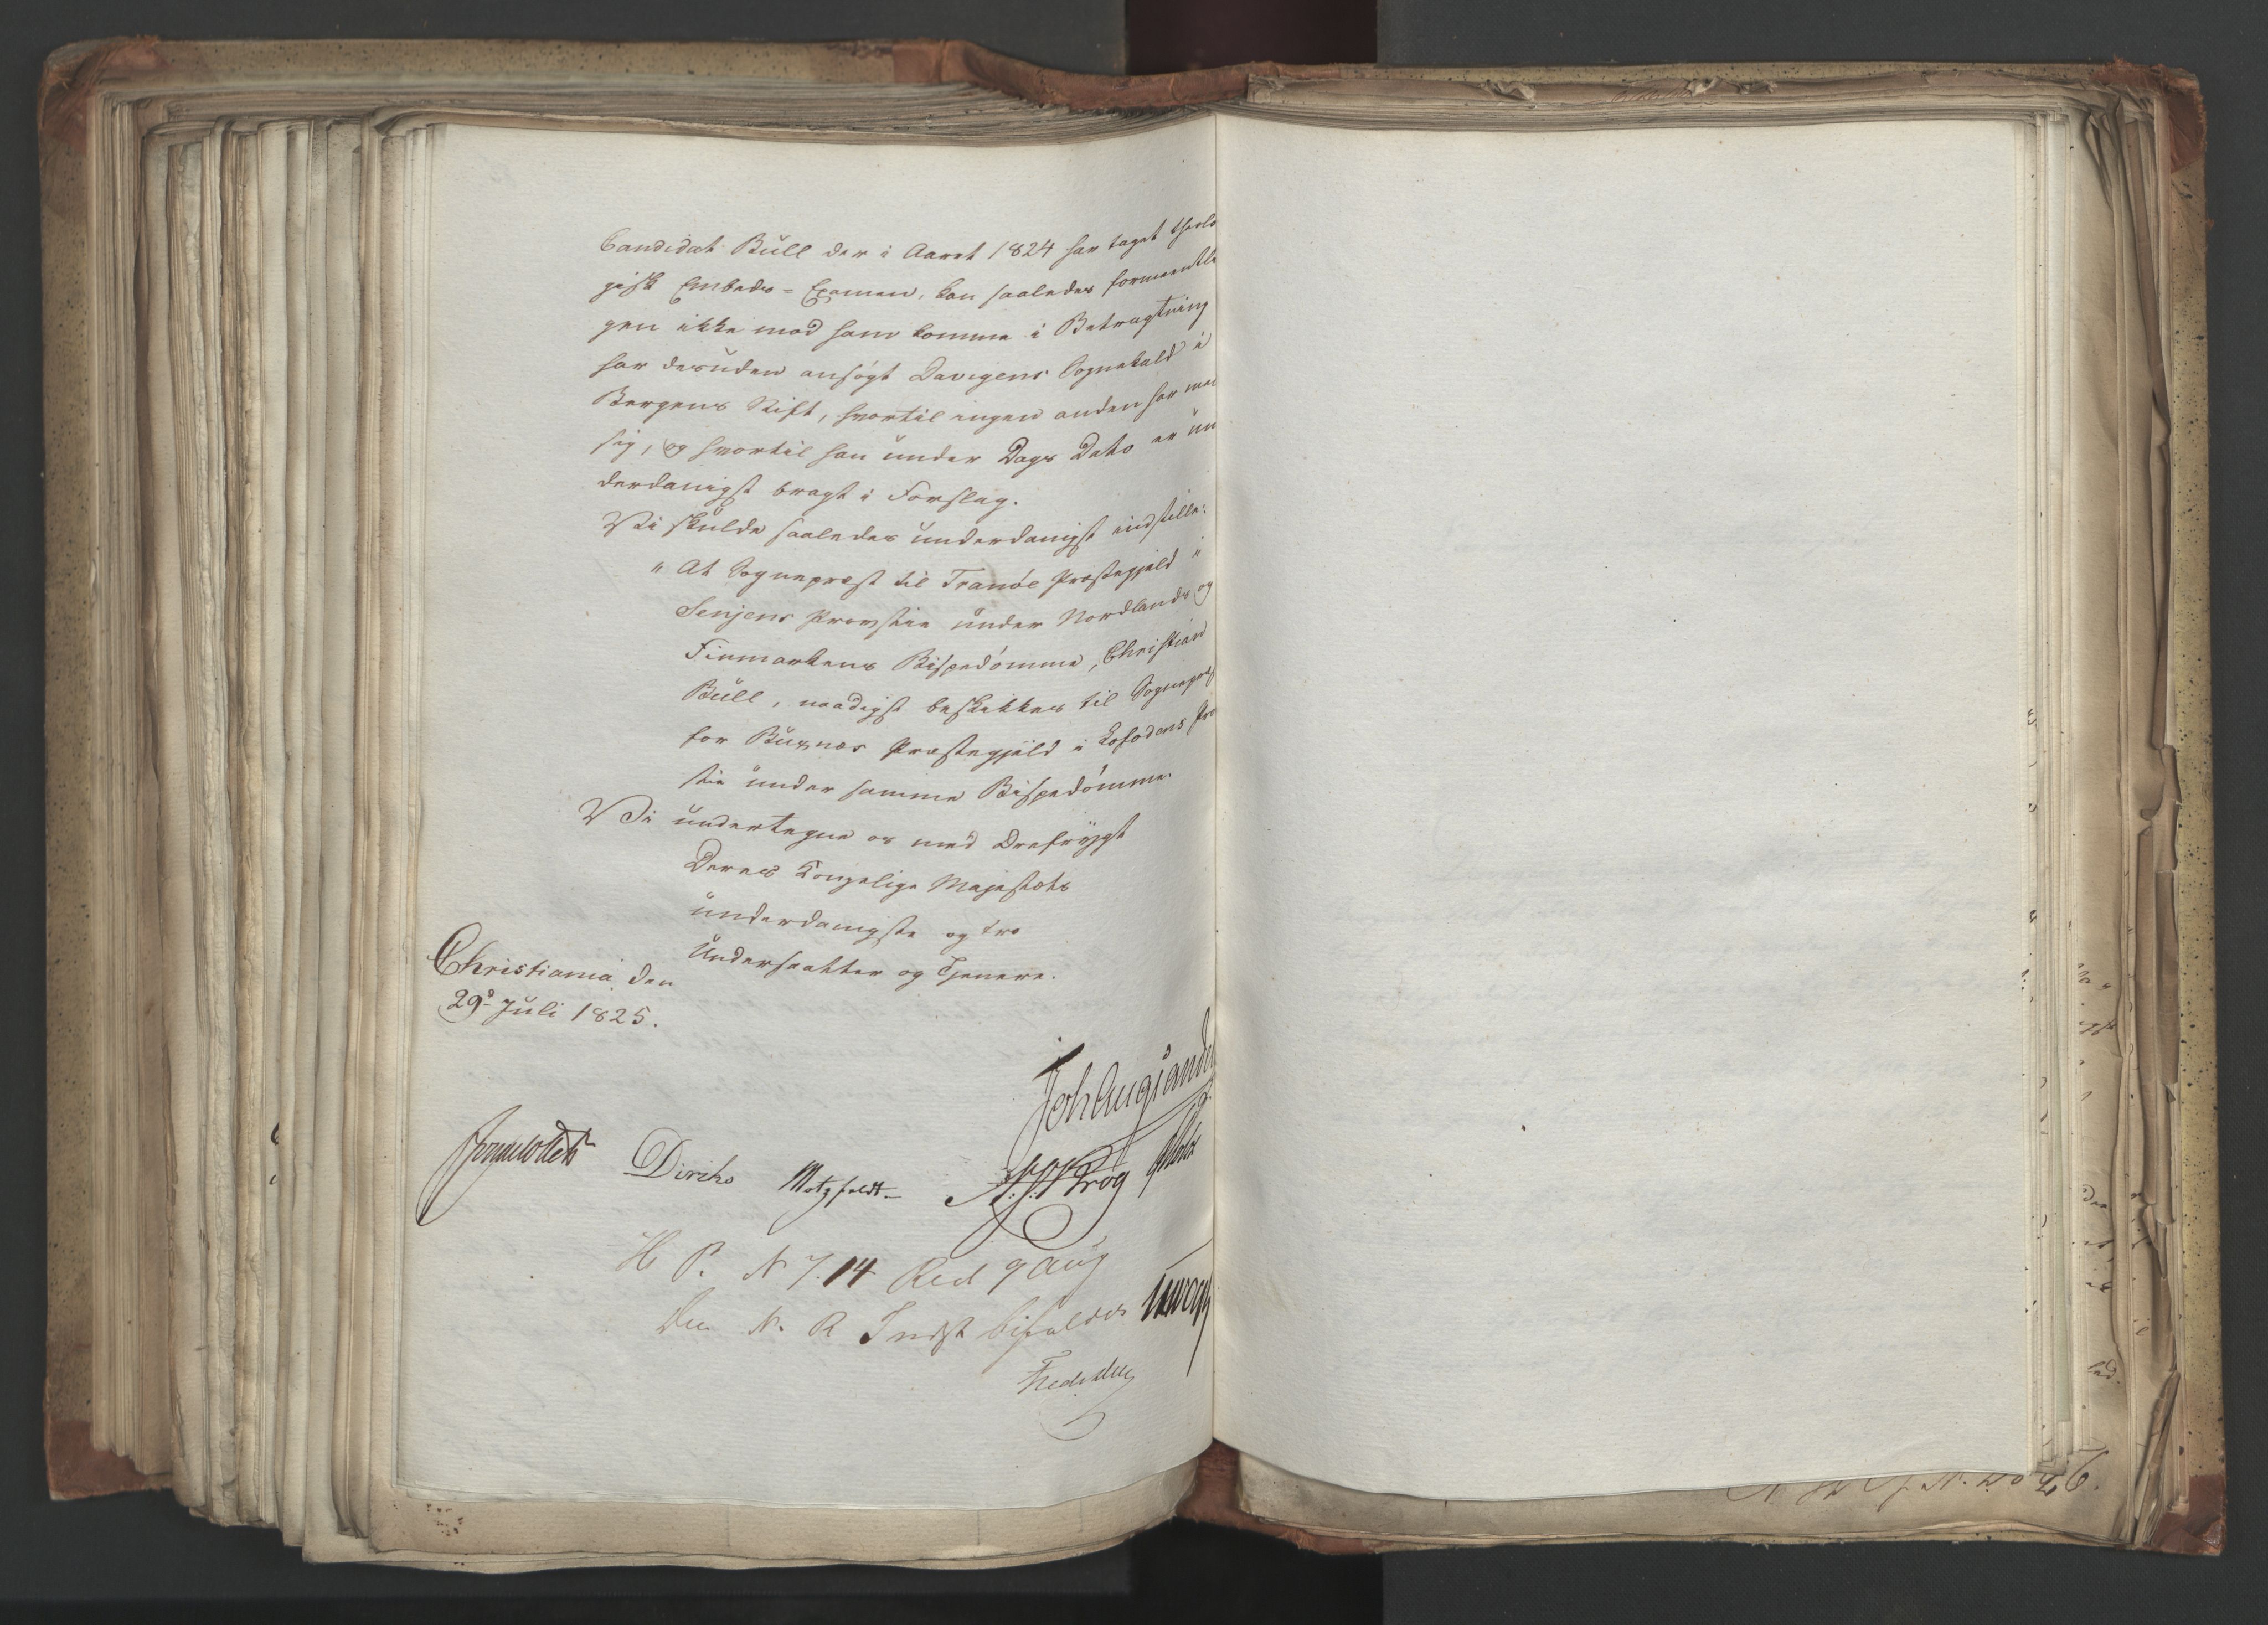 Candidat Büll der i Aaret 1824 har taget theolo
gisk Embeds-Examen, kan saaledes formeentli
gen ikke mod ham komme i Betragtning
har desuden ansøgt Davigens Sognekald i
Bergens Stift, hvortil ingen anden har mel
sig, og hvortil han under Dags Dato er un
derdanigst bragt i Forslag.
Vi skulde saaledes underdanigst indstille:
"At Sognepræst til Tranøe Præstegjeld i
Senjens Provstie under Nordlands og
Finmarkens Bispedømme, Christian
Büll, naadigst beskikkes til Sognepræs
for Buxnæs Præstegjeld i Lofodens Pro
stie under samme Bispedømme.
Vi undertegne os med Ærefrygt
Deres Kongelige Majestæts
underdanigste og tro
Undersaatter og Tjenere.
Christiania den
29d Juli 1825.
Joh Aug Sande
Diriks Motzfeldt A: J: Krog Holst
H P. N 7.14 Red 9 Aug
Den N. R Indst bifaldes
Fredr Due